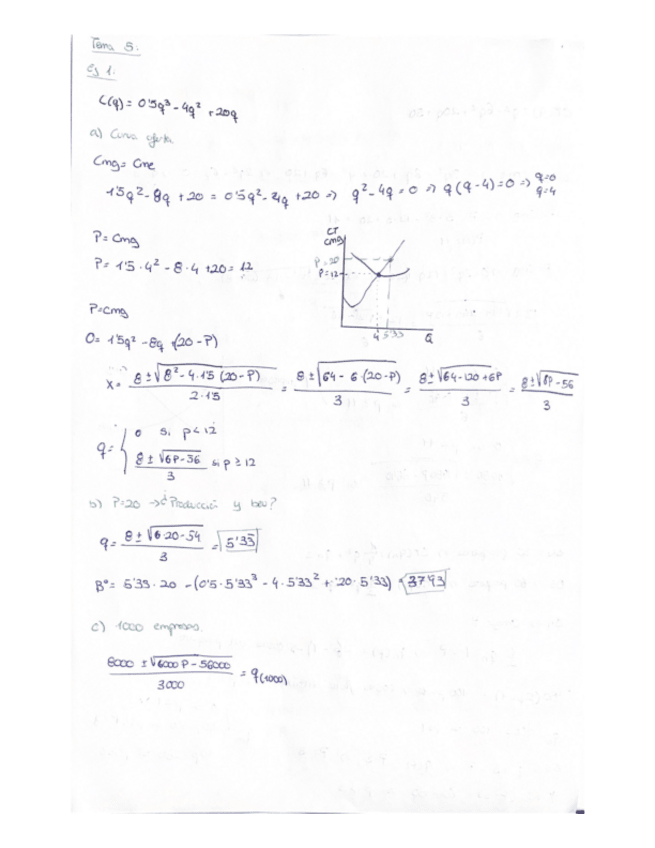 Tema 5.
ej 1.
C(q) = 0'5q³ - 4q² + 20q
a) Curva oferta
Cmg = Cme
1'5q² - 8q + 20 = 0'5q² - 4q + 20 => q² - 4q = 0 => q (q - 4) = 0 => q=0 q=4
P = Cmg
P = 1'5 · 4² - 8 · 4 + 20 = 12
CT
Cmg
P = 20
P = 12
4 5'33 Q
P = Cmg
0 = 1'5q² - 8q + (20 - P)
x = 8 ± √8² - 4 · 1'5 (20 - P) / 2 · 1'5 = 8 ± √64 - 6 · (20 - P) / 3 = 8 ± √64 - 120 + 6P / 3 = 8 ± √6P - 56 / 3
q = { 0 si p < 12
8 ± √6P - 56 / 3 si p ≥ 12
b) P=20 -> ¿Producción y ben?
q = 8 ± √6·20 - 54 / 3 = 5'33
Bº = 5'33 · 20 - (0'5 · 5'33³ - 4 · 5'33² + 20 · 5'33) = 37'93
c) 1000 empresas.
8000 ± √6000 P - 56000 / 3000 = q(1000)